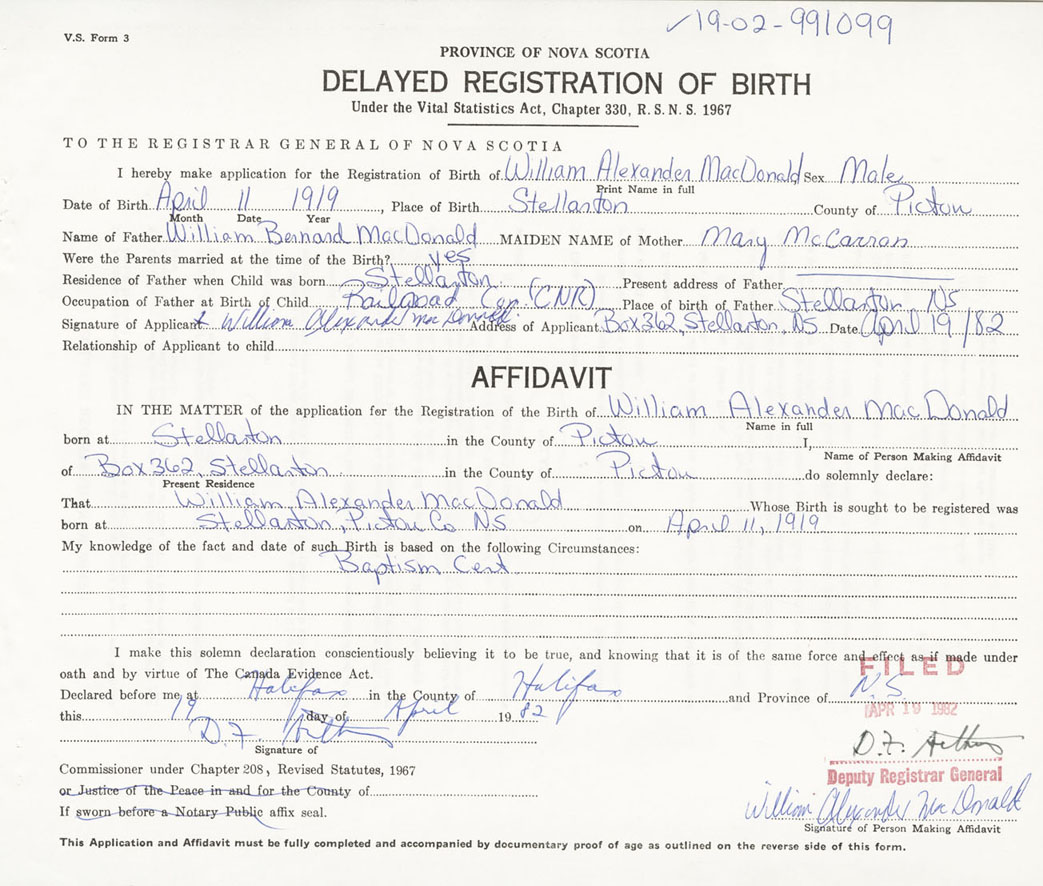 19-02-991099
V.S. Form 3
PROVINCE OF NOVA SCOTIA
DELAYED REGISTRATION OF BIRTH
Under the Vital Statistics Act, Chapter 330, R. S. N. S. 1967
TO THE REGISTRAR GENERAL OF NOVA SCOTIA
I hereby make application for the Registration of Birth of William Alexander MacDonald Sex Male
Print Name in full
Date of Birth April 11 1919, Place of Birth Stellarton County of Pictou
Month Date Year
Name of Father William Bernard MacDonald MAIDEN NAME of Mother Mary McCarron
Were the Parents married at the time of the Birth? yes
Residence of Father when Child was born Stellarton Present address of Father
Occupation of Father at Birth of Child Railroad (CNR) Place of birth of Father Stellarton NS
Signature of Applicant William Alexander MacDonald Address of Applicant Box 362, Stellarton, NS Date April 19/82
Relationship of Applicant to child
AFFIDAVIT
IN THE MATTER of the application for the Registration of the Birth of William Alexander MacDonald
Name in full
born at Stellarton in the County of Pictou I,
Name of Person Making Affidavit
of Box 362, Stellarton in the County of Pictou do solemnly declare:
Present Residence
That William Alexander MacDonald Whose Birth is sought to be registered was
born at Stellarton, Pictou Co NS on April 11, 1919
My knowledge of the fact and date of such Birth is based on the following Circumstances:
Baptism Cert
I make this solemn declaration conscientiously believing it to be true, and knowing that it is of the same force and effect as if made under
oath and by virtue of The Canada Evidence Act.
FILED
Declared before me at Halifax in the County of Halifax and Province of N.S
this 19 day of April 1982
APR 19 1982
D.F.
Signature of
D.F.
Commissioner under Chapter 208, Revised Statutes, 1967
Deputy Registrar General
or Justice of the Peace in and for the County of
William Alexander MacDonald
If sworn before a Notary Public affix seal.
Signature of Person Making Affidavit
This Application and Affidavit must be fully completed and accompanied by documentary proof of age as outlined on the reverse side of this form.